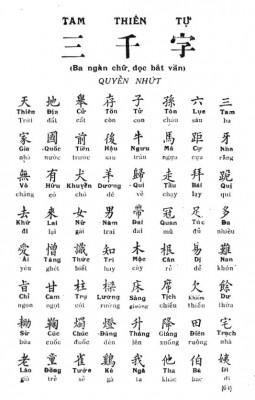 TAM THIÊN TỰ
三千字
(Ba ngàn chữ, đọc bắt vần)
QUYỂN NHỨT
天 地 舉 存 子 孫 六 三
Thiên Địa Cử Tồn Tử Tôn Lục Tam
trời đất cất còn con cháu sáu ba
家 國 前 後 牛 馬 距 牙
Gia Quốc Tiền Hậu Ngưu Mã Cự Nha
nhà nước trước sau trâu ngựa cựa răng
無 有 犬 羊 歸 走 拜 跪
Vô Hữu Khuyển Dương Qui Tẩu Bái Quị
chăng có chó dê về chạy lạy quì
去 來 女 男 帶 冠 足 多
Khứ Lai Nữ Nam Đái Quan Túc Đa
đi lại gái trai đai mũ đủ nhiều
愛 憎 識 知 木 根 易 難
Ái Tăng Thức Tri Mộc Căn Dị Nan
yêu ghét biết hay cây rễ dễ khôn
旨 甘 柱 樑 床 席 欠 餘
Chỉ Cam Trụ Lương Sàng Tịch Khiếm Dư
ngon ngọt cột rường giường chiếu thiếu thừa
耡 鞠 燭 燈 升 降 田 宅
Sừ Cúc Chúc Đăng Thăng Giáng Điền Trạch
bừa cuốc đuốc đèn lên xuống ruộng nhà
老 童 雀 鷄 我 他 伯 姨
Lão Đồng Tước Kê Ngã Tha Bá Di
già trẻ sẻ gà ta khác bác dì
(64)